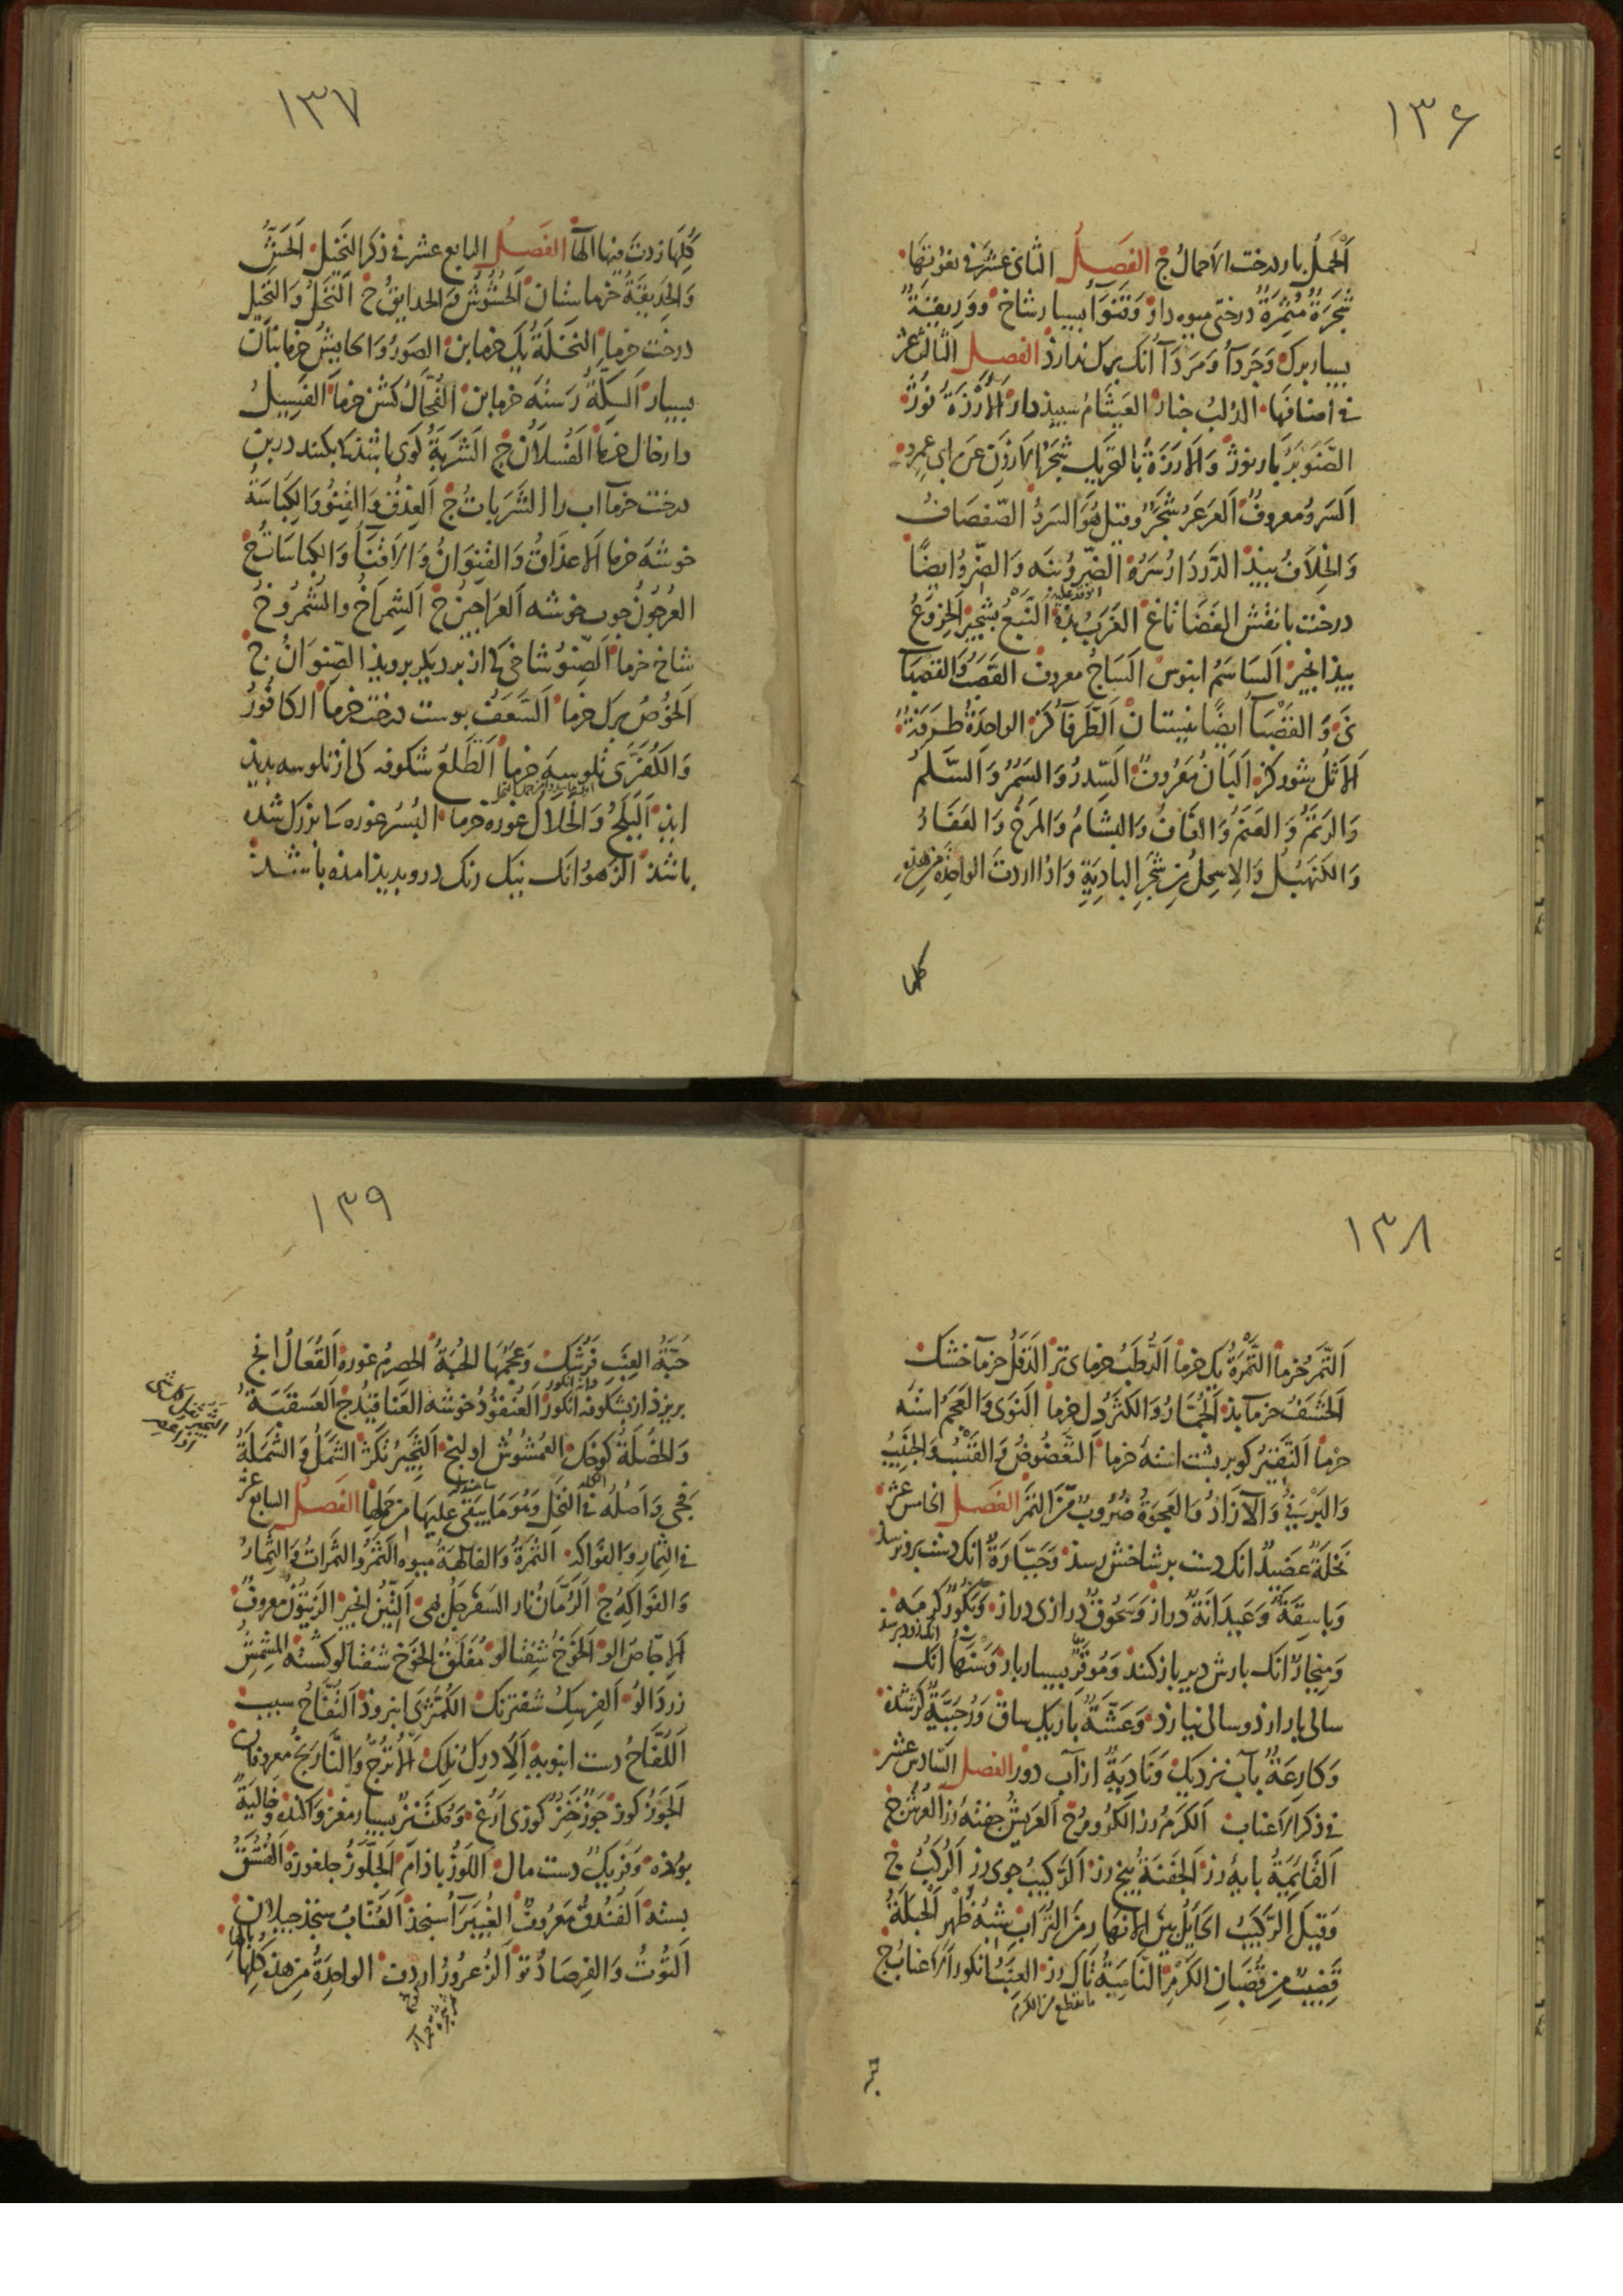 ١٣۶
اَلْحَمْلُ بار درخت الاَحمالُ ج الفَصلُ الثانى عشَرَ فى نعُوتها
شَجَرَةٌ مُثمِرَةٌ درختى ميوه دار وَقَنوَآءُ بسيار شاخ وَوَرِيقَةٌ
بسيار برك وَجَردَآءُ وَمَردَآءُ انك برك ندارذ الفصل الثالث عشر
فى اصنافها الدُلبُ جنار العَيثَامُ سبيذدار اَلاَرْزَةُ نُوژ
الصَّنَوبَرُ بار نوژ وَالاَرَزَةُ بالتحريك شَجَرُ الاَرزَنِ عَن ابى عمرٍو
اَلسَروُ معروفٌ اَلعَرعَرُ شَجَرٌ وقيل هُوَ السَروُ الصّفصَافُ
وَالخِلَافُ بيذ الدَّردَارُ سَرَه الضِّروُ بنَه وَالضَّروُ ايضًا
درخت بانقش الغَضَا تاغ الغَرَبُ بذه النَّبعُ شجيز الخِروَعُ
بيذ انجير اَلسَاسَمُ ابنوس اَلسَاجُ معروف القَصَبُ وَالقَصبَآءُ
نى وَالقَصْبَآءُ ايضًا نيستان اَلطَّرفَآءُ كز الواحِدَةُ طَرَفَةٌ
اَلاَثلُ شوركز اَلبَانُ مَعرُوفٌ اَلسِّدرُ وَالسَمُرُ وَالسَّلَمُ
وَالرَتَمُ وَالعَنَمُ وَالقَافُ وَالبشامُ وَالمَرخُ وَالعَفَارُ
وَالكنَهبُلُ وَالاِسحِلُ مِن شَجَرِ البادِيَةِ وَاذا اردتَ الواحِدَةَ مِن هذِهِ
كلها
١٣٧
كُلِّهَا زدتَ فيها الهَآءَ الفَصلُ الرابع عشر فى ذكر النَخيل اَلحَشُّ
وَالحَدِيقَةُ خرماستان اَلحُشُوشُ وَالحدايقُ ج اَلنَخلُ وَالنَخِيلُ
درخت خرما النَخلَةُ يك خرمابن الصَورُ وَالحايِشُ خرمابنان
بسيار اَلسِكَّةُ رَستَه خرمابن الفُحَّالُ كشن خرما الفَسِيلُ
دارخال خرما اَلفُسلَانُ ج الشَرَبَةُ كَوى باشذ كا بكنند در بن
درخت خرما آب را الشَرَبَاتُ ج اَلعِذقُ وَالقِنوُ وَالكِبَاسَةُ
خوشَه خرما اَلاَعذَاقُ وَالقِنوَانُ وَالاَقنَآءُ وَالكباسَاتُ ج
العُرجُونُ جوب خوشه اَلعَراجينُ ج اَلشِمرَاخُ والشُمرُوخُ
شاخ خرما اَلصِّنوُ شاخى كا از بر ديكر برويذ الصِّنوَانُ ج
اَلخُوصُ برك خرما اَلسَّعَفُ بوست درخت خرما الكَافُورُ
وَالكُفُرَّى تلوسه خرما اَلطَّلعُ شكوفه كى از تلوسه بديذ
ايذ اَلبَلَحُ وَالخَلَالُ غوره خرما البُسرُ غوره كا بزرك شده
باشذ الزَهوُ انك نيك رنك درو بديذ امذه باشذ
١٣٨
اَلتَّمرُ خرما التَّمرَةُ يك خرما اَلرُّطَبُ خرماى تر الدَقَلُ خرمآء خشك
اَلحَشَفُ خرمآء بذ اَلجُمَّارُ وَالكَثَرُ دل خرما اَلنَوَى وَالعَجَمُ استَه
خرما اَلنَّقِيرُ كو بر بشت استهٔ خرما اَلتَّعضُوضُ وَالقَسْبُ وَالجَنِيبُ
وَالبَرْنِيُّ وَالآزاذُ وَالعَجوَةُ ضُرُوبٌ مِنَ التَمرِ الفَصل الخامس عشر
نَخلَةٌ عَضِيدٌ انك دست بر شاخش رسذ وَجَبَّارَةٌ انك دست برو نرسذ
وَبَاسِقَةٌ وَعَيدَانَةٌ دراز وَسَحُوقٌ درازى دراز وَبَكُورٌ كَرمَه
وَمِيخَارٌ انك بارش دير باز كنند وَمُوقَرٌ بسيار بار وَسَنهَآءُ انك
سالى بار ارذ و سالى نيارذ وَعَشَّةٌ باريك ساق وَرُجَبِيَّةٌ كرشذه
وَكارِعَةٌ بآب نزديك وَنَادِيَةٌ از آب دور الفصل السَادس عشر
فى ذكر الاَعناب اَلكَرمُ رز الكُرُومُ ج اَلعَرِيشُ جفتهٔ رز العُرشُ ج
اَلقَايِمَةُ بايهٔ رز اَلجَفنَةُ بيخ رز اَلرَكِيبُ جوى رز اَلرُكُبُ ج
وَقِيلَ الرَّكيبُ الحَايِلُ بَين الانهار مِنَ التُرَابِ شِبهُ ظَهرٍ اَلحَبَلَةُ
قَضِيبٌ مِن قُضبَانِ الكَرمِ النَّامِيَةُ تَاك رز العِنَبُ انكور الاَعنابُ ج
ما يقطع من الكرم
١٣٩
حَبَّةُ العِنَبِ فَرشك وَعَجمُهَا الحُبَةُ الحصرِمُ غوره اَلقُعَالُ انج
بريزذ از شكوفه انكور اَلعُنقُودُ خوشه العَنَاقيدُ ج اَلعَسقَبَةُ
دانه انكور
وَالخُصلَة كوخك العُمشُوشُ اولنج الثَّجِيرُ نكژ الشَّمَلُ وَالشَّمَلَةُ
بَجى وَاَصلُه فى النَخلِ وَهُوَ مَا يَبقَى عَلَيهَا مِن حَملِهَا الفَصلُ السابع عشر
فى الثِمَارِ وَالفَوَاكِه اَلثَمَرَةُ وَالفَاكهَةُ ميوه اَلثَمَرُ وَالثَمَراتُ وَالثِّمَارُ
وَالفَوَاكِهُ ج اَلرُمَّانُ نار السَفَرجَلُ بهى اَلتِّينُ انجير الزَيتُونُ معروفٌ
اَلاِجَّاصُ الو اَلخَوخُ شفتالو مُفَلَّقُ الخَوخِ شفتالو كشته المشمِشُ
زردآلو اَلفِرسِكُ شفترنك الكُمَّثرَى ابنروذ اَلتُفَّاحُ سيب
اَللُفَّاحُ دست انبويه اَلاِّدرِكُ نلك الاُترُجُّ وَالنَّارَنجُ معروفان
اَلجَوزُ كوز جَوزٌ خَزٌ كوزى ارغ وَمُكتَنِزٌ بسيار مغز واكنده وخاليَةٌ
بوذه وَفَرِيكٌ دست مال اَللَوزُ باذام اَلجِلَّوزُ جلغوزه اَلفُستُقُ
بسته اَلفُندُقُ مَعرُوفٌ الغُبَيرَآءُ سنجذ اَلعُنَّابُ سنجذ جيلان
اَلتُوتُ وَالفِرصَادُ توذ اَلزُعرُورُ اردت الواحِدَةُ مِن هذِه كُلِّهَا